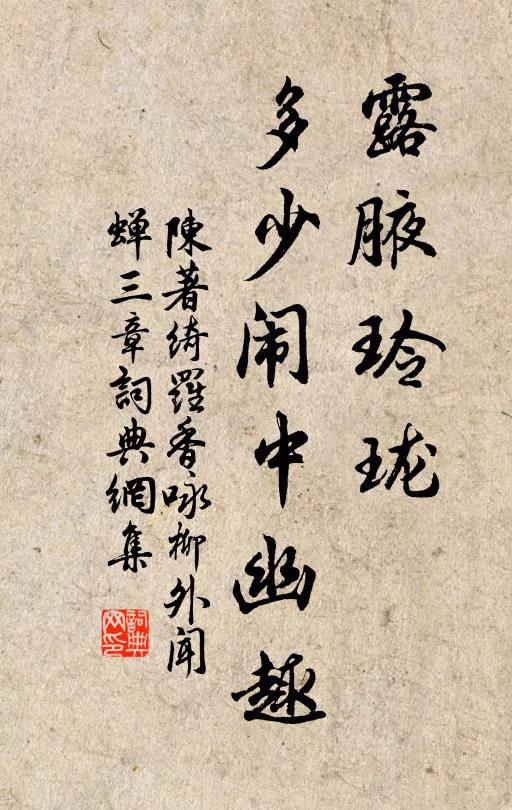 露腋玲珑
多少闹中幽趣
陳著綺羅香咏柳外闻
蝉三章詞典網集
詞典
网印